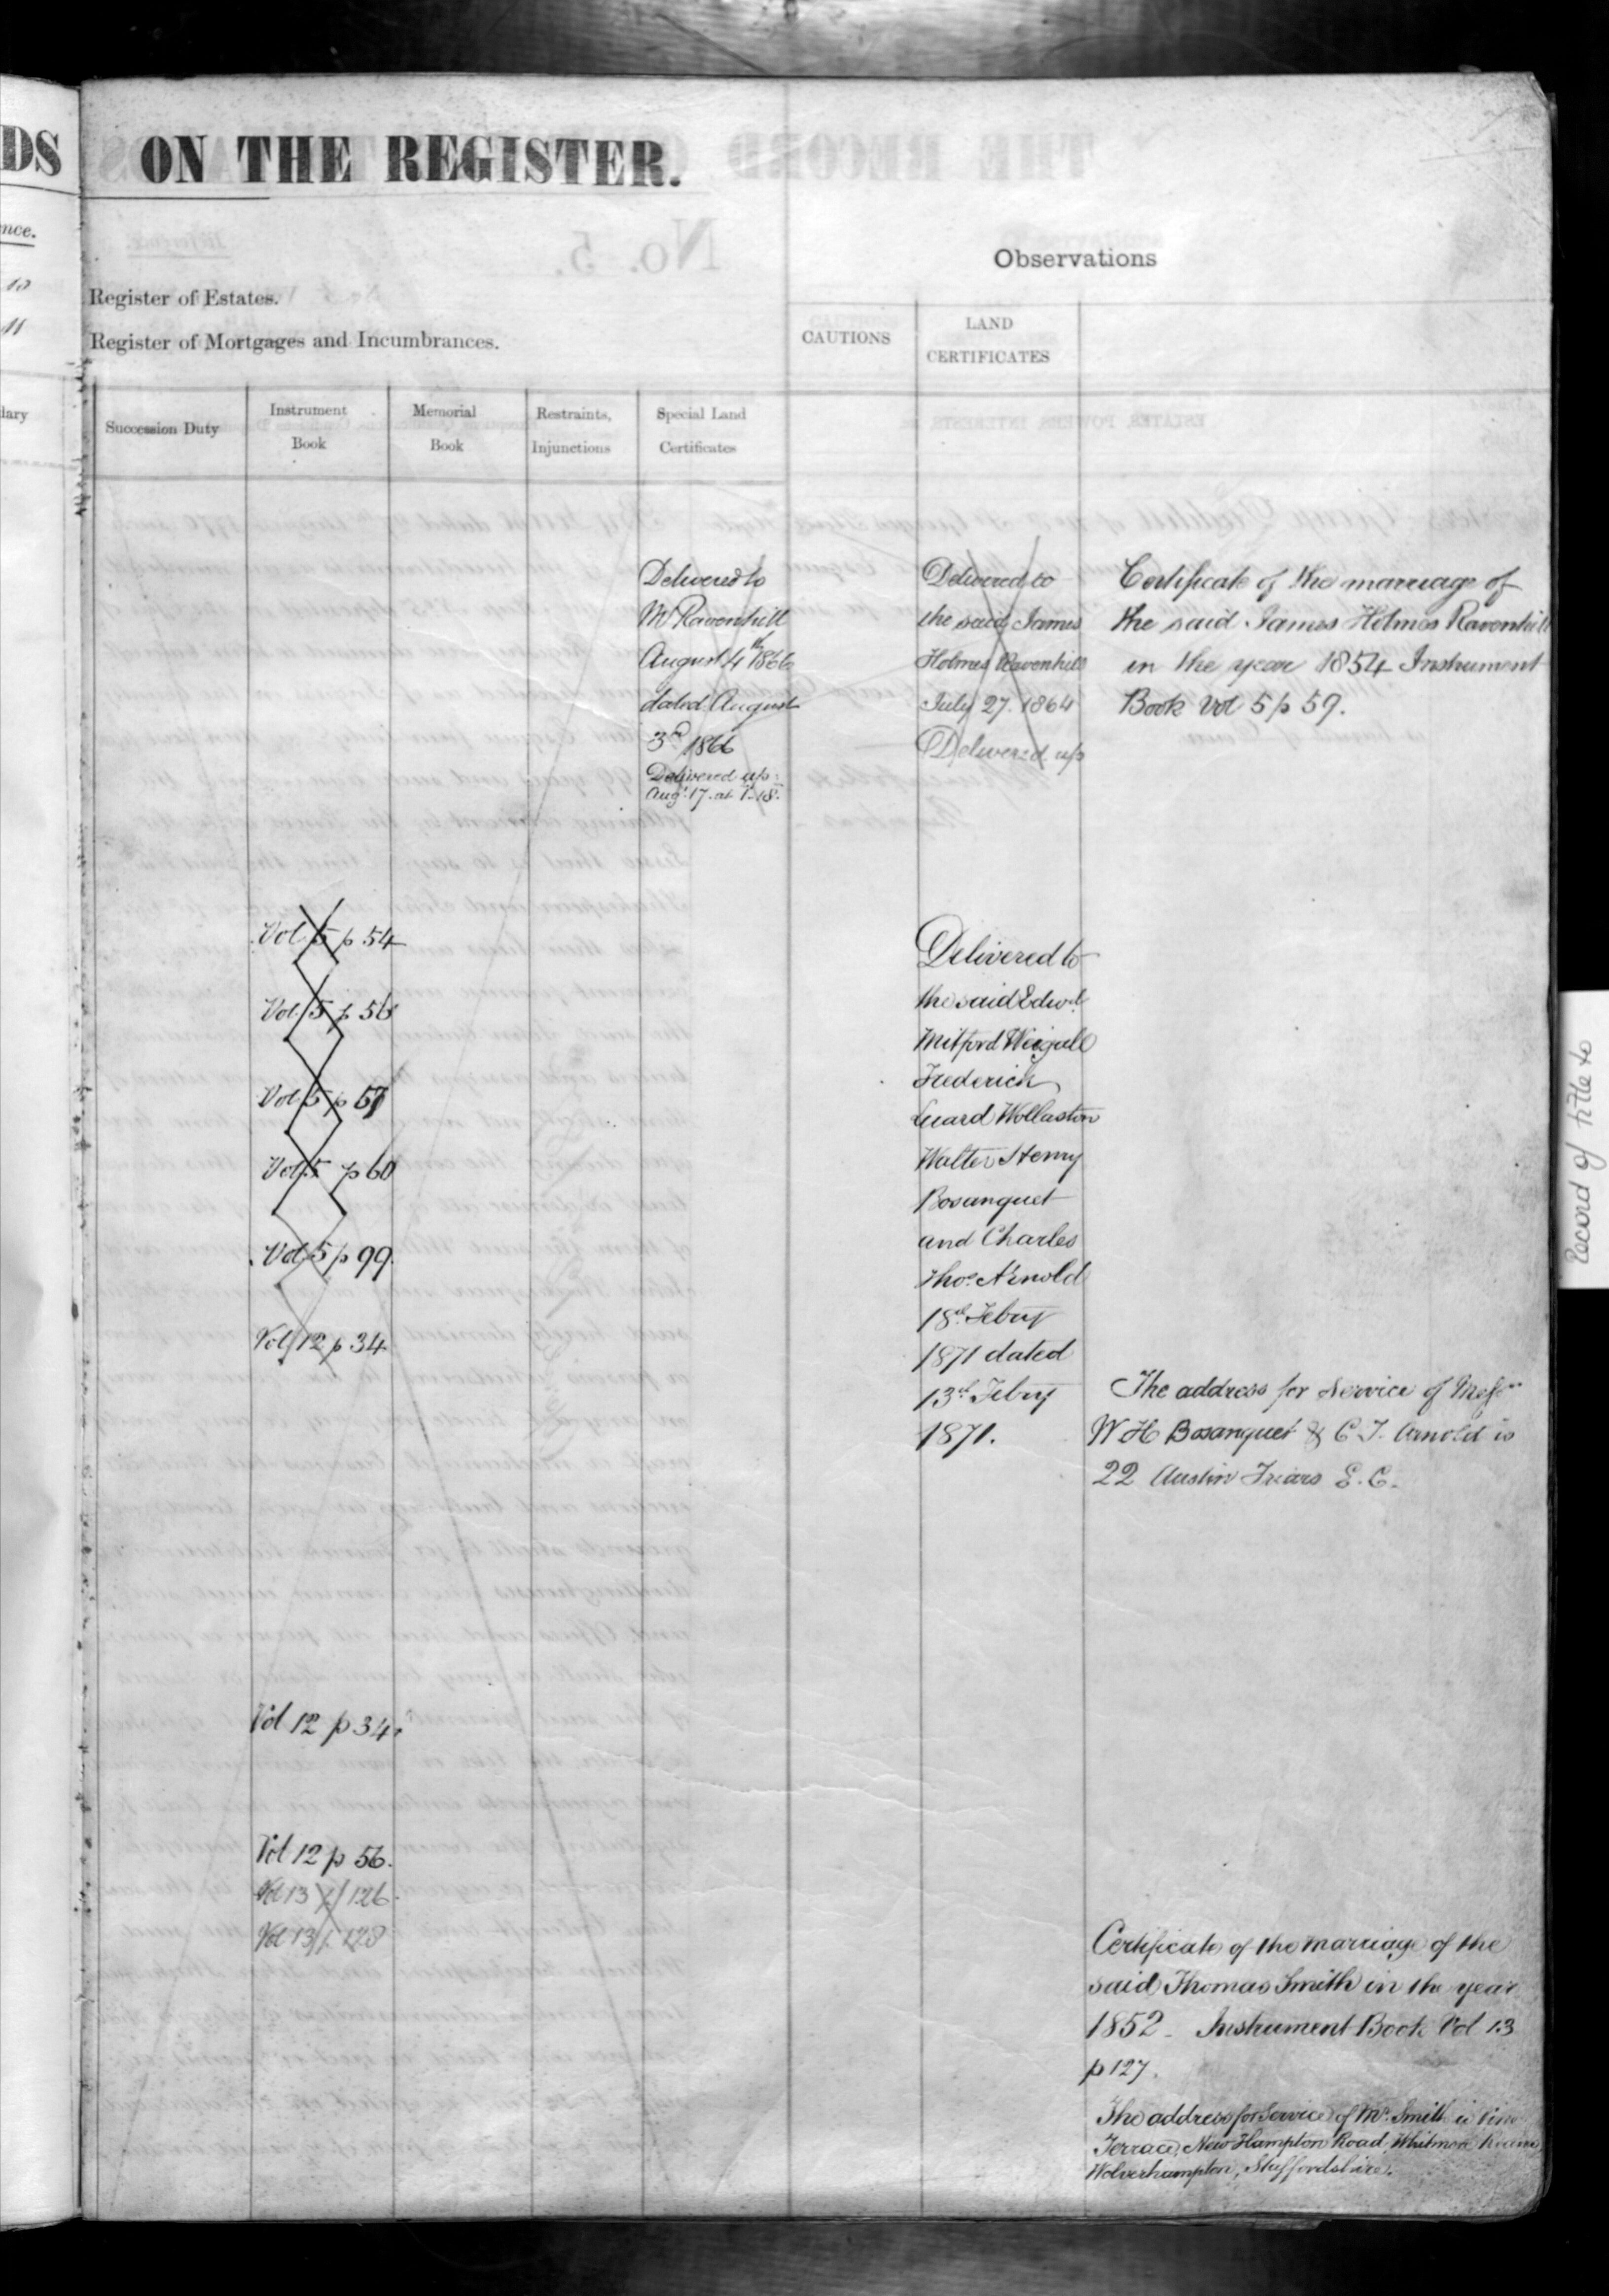 DS
ON THE REGISTER.
nce.
10
11
lary
Register of Estates.
Register of Mortgages and Incumbrances.
Observations
CAUTIONS
LAND
CERTIFICATES
Succession Duty
Instrument
Book
Memorial
Book
Restraints,
Injunctions
Special Land
Certificates
Delivered to
Mr Ravenhill
August 4th 1866
dated August
3rd 1866
Delivered up
Augt. 17. at 1.18.
Delivered to
the said James
Holmes Ravenhill
July 27. 1864
Delivered up
Certificate of the marriage of
the said James Holmes Ravenhill
in the year 1854 Instrument
Book Vol 5 p 59.
Vol 5 p 54
Vol 5 p 56
Vol 5 p 57
Vol 5 p 60
Vol 5 p 99.
Vol 12 p 34
Delivered to
the said Edwd.
Mitford Weigall
Frederick
Luard Wollaston
Walter Henry
Bosanquet
and Charles
Thos. Arnold
18th Febry
1871 dated
13th Febry
1871.
The address for Service of Messrs
W H Bosanquet & C. T. Arnold is
22 Austin Friars E. C.
Vol 12 p 34.
Vol 12 p 56.
Vol 13 p 126.
Vol 13 p 128
Certificate of the marriage of the
said Thomas Smith in the year
1852 - Instrument Book Vol 13
p 127.
The address for Service of Mr. Smith is
Terrace, New Hampton Road, Whitmore
Wolverhampton, Staffordshire.
Record of title to